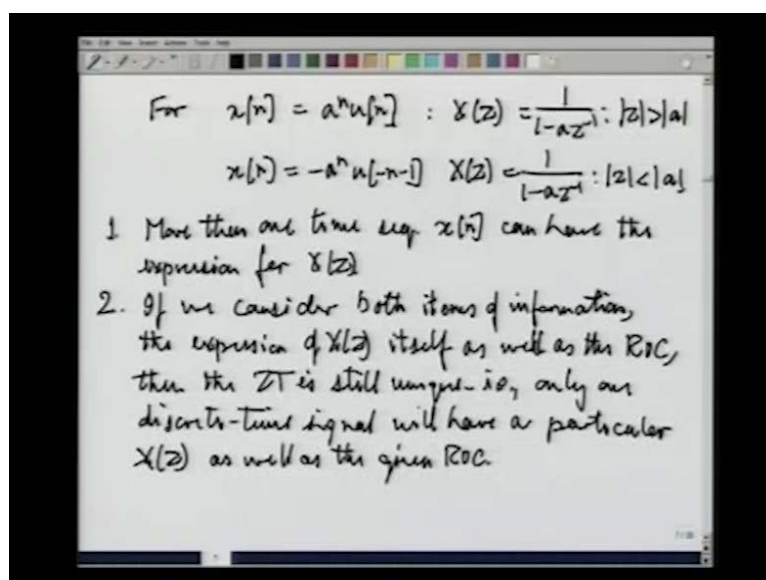 For x[n] = aⁿu[n] : X(z) = 1/(1-az⁻¹) : |z|>|a|
x[n] = -aⁿu[-n-1] X(z) = 1/(1-az⁻¹) : |z|<|a|
1 More than one time seq. x[n] can have the
expression for X(z)
2. If we consider both items of information,
the expression of X(z) itself as well as the ROC,
then the ZT is still unique - ie, only one
discrete-time signal will have a particular
X(z) as well as the given ROC.